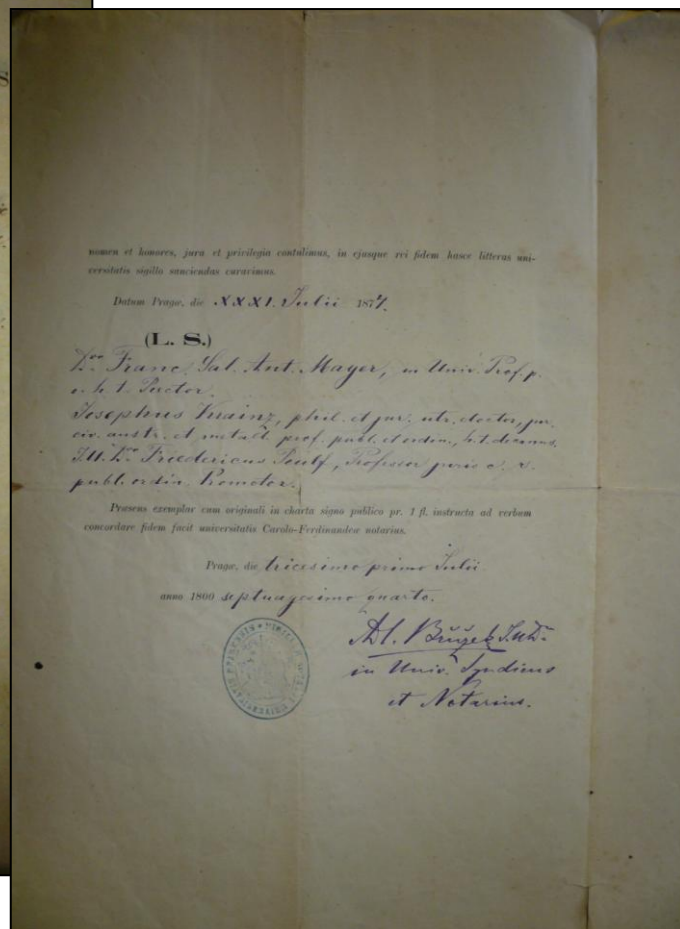 nomen et honores, jura et privilegia contulimus, in ejusque rei fidem hasce litteras uni-
versitatis sigillo sanciendas curavimus.
Datum Pragæ, die XXXI. Julii 1874.
(L. S.)
Franc. Sal. Ant. Mayer, in Univ. Prof. p.
h. t. Rector.
Josephus Krainz, phil. et jur. utr. doctor, jur.
civ. austr. et prof. publ. et ordin., h. t. decanus.
J. U. Dr. Friedericus Professor juris c. r.
publ. ordin. Promotor.
Præsens exemplar cum originali in charta signo publico pr. 1 fl. instructa ad verbum
concordare fidem facit universitatis Carolo-Ferdinandeæ notarius.
Pragæ, die tricesimo primo Julii
anno 1800 septuagesimo quarto.
in Univ. Syndicus
et Notarius.